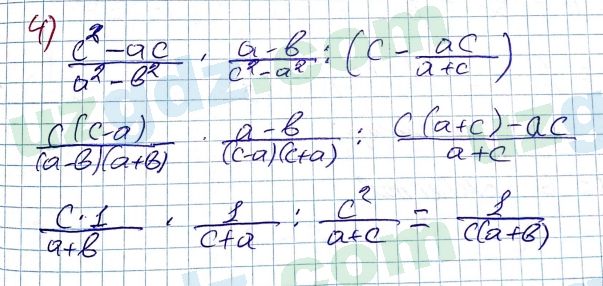 4) (c² - ac)/(a² - b²) · (a - b)/(c² - a²) : (c - ac/(a + c))
c(c - a)/((a - b)(a + b)) · (a - b)/((c - a)(c + a)) : (c(a + c) - ac)/(a + c)
(c · 1)/(a + b) · 1/(c + a) : c²/(a + c) = 1/(c(a + b))